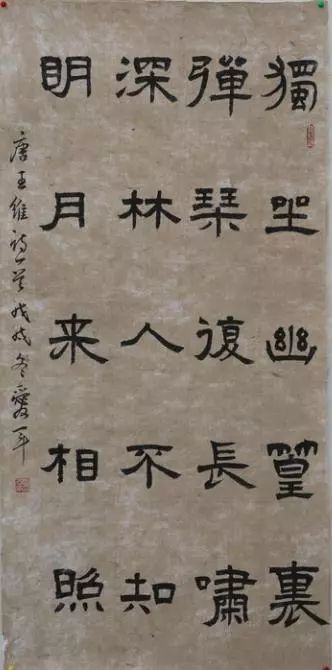 獨坐幽篁裏
彈琴復長嘯
深林人不知
明月来相照
唐王維詩一首戊戌冬愛平